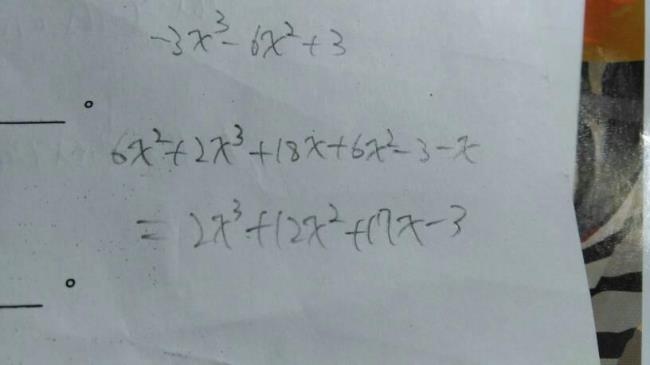 -3x³-6x²+3
6x²+2x³+18x+6x²-3-x
=2x³+12x²+17x-3